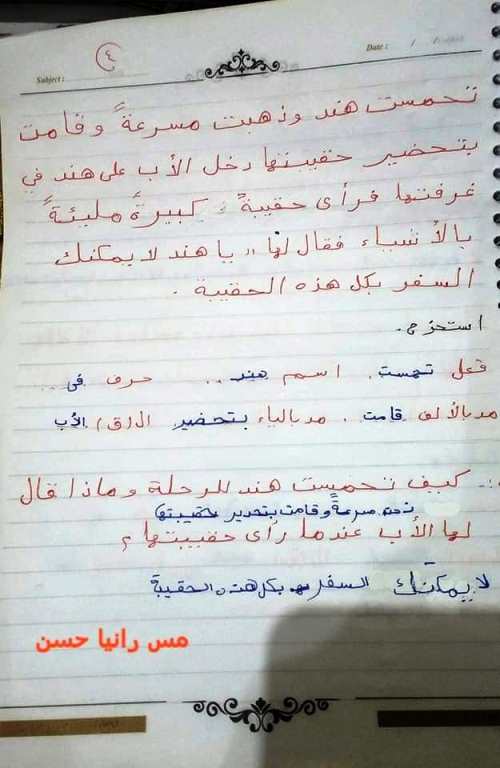 ٤
Subject :
Date : / /
تحمست هند وذهبت مسرعةً وقامت
بتحضير حقيبتها دخل الأب على هند في
غرفتها فرأى حقيبةً كبيرةً مليئةً
بالأشياء فقال لها " يا هند لا يمكنك
السفر بكل هذه الحقيبة .
استخرج .
فعل تحمست . اسم هند .. حرف في ..
مد بالألف قامت . مد بالياء بتحضير ال (ق) الأب
كيف تحمست هند للرحلة وماذا قال
مسرعةً وقامت بتحدير حقيبتها
لها الأب عندما رأى حقيبتها ؟
لا يمكنك السفر بكل هذه الحقيبة
مس رانيا حسن